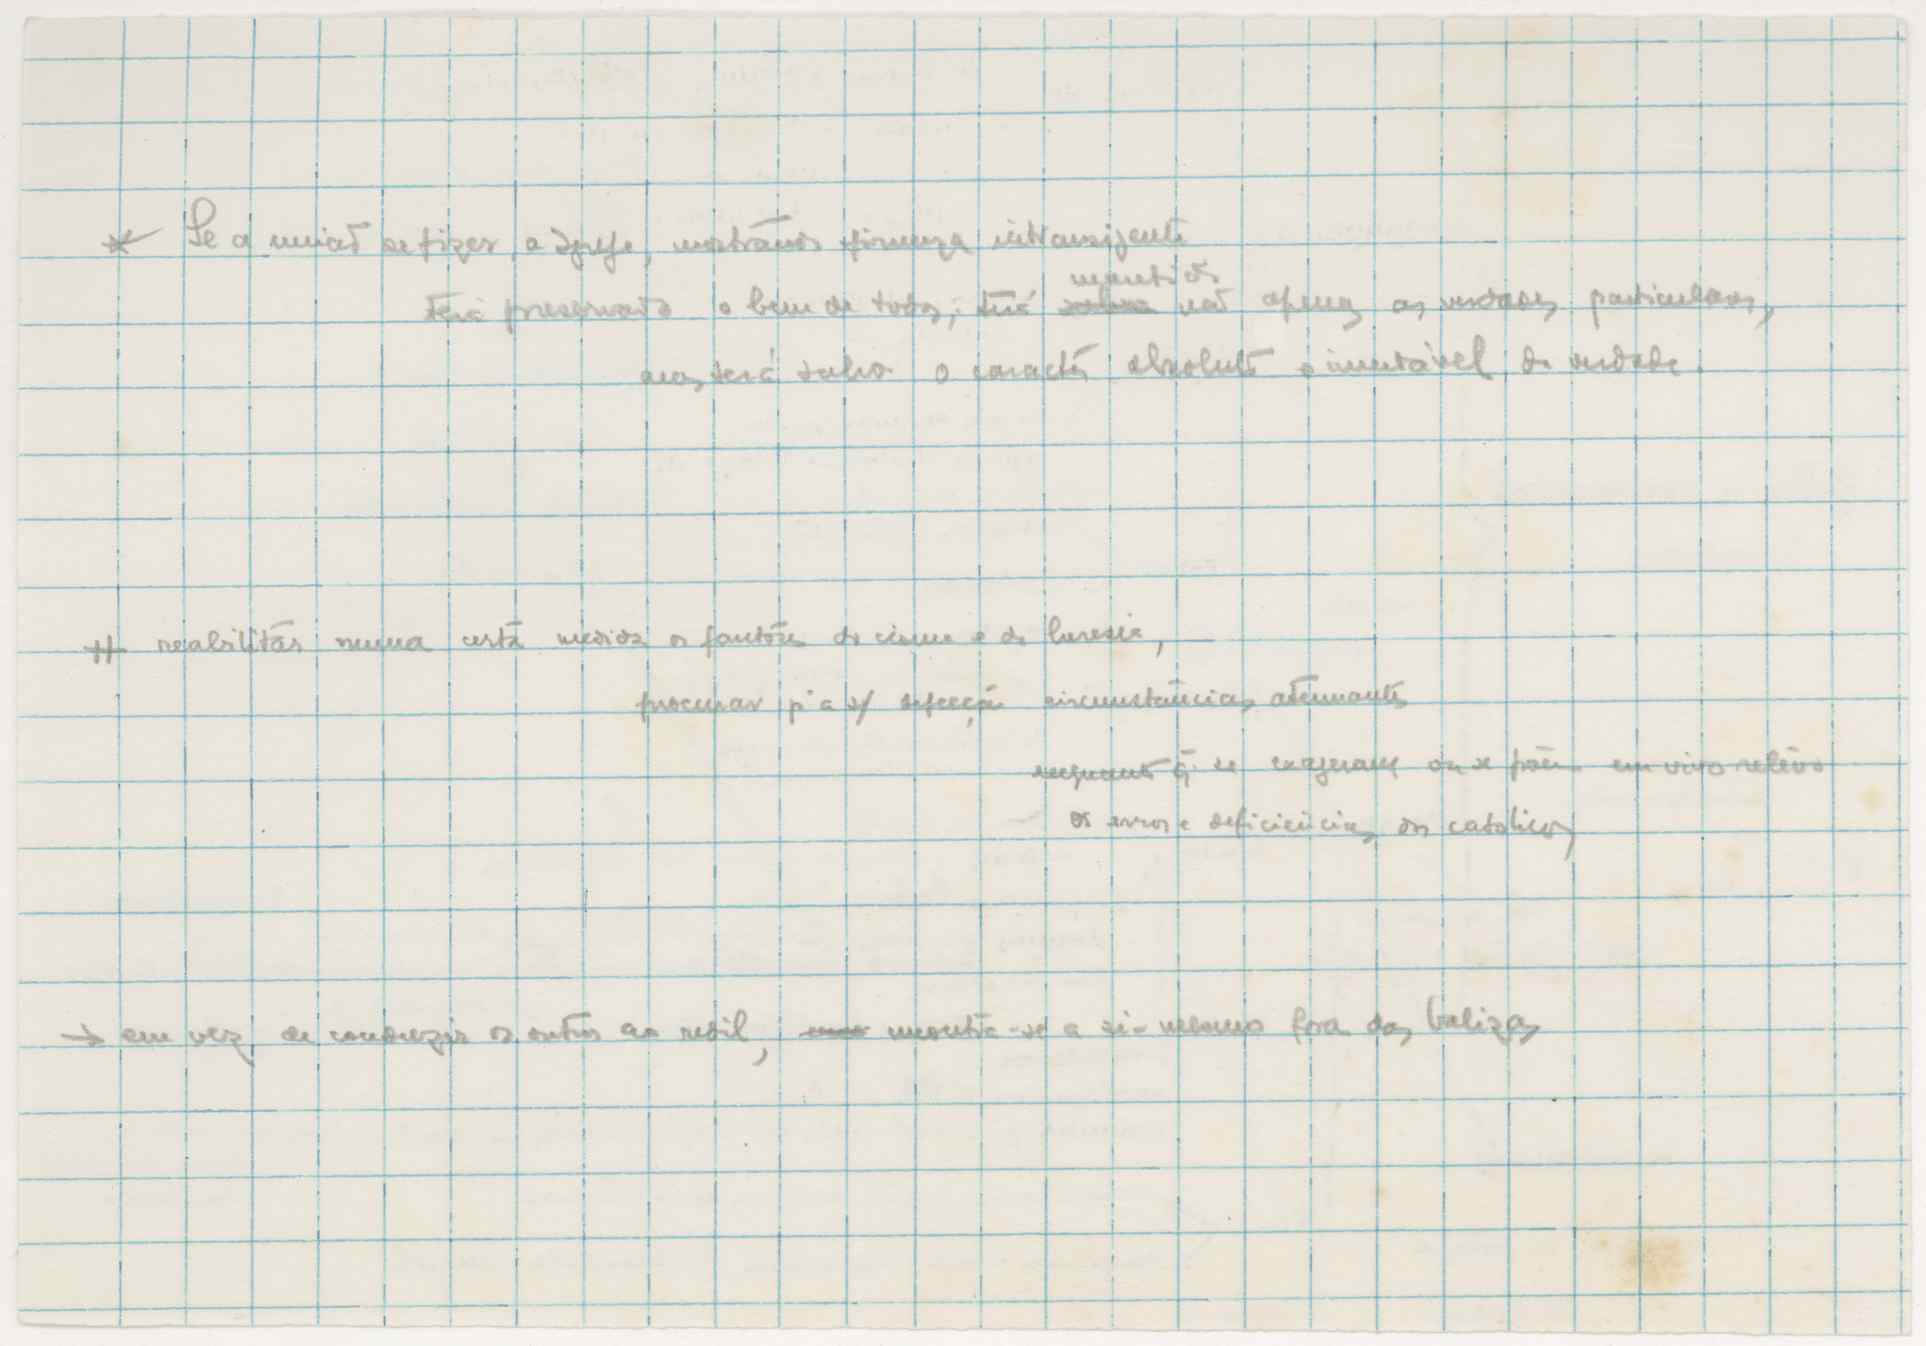 * Se a união se fizer, a Igreja, mostrando firmeza intransigente
mantido
terá preservado o bem de todos; terá não apenas as verdades particulares,
mas, será salvo o caracter absoluto e imutável da verdade.
++ reabilitar numa certa medida os fautores do cisma e da heresia,
procurar p'a s/ defecção circunstâncias atenuantes
enquanto q̃ se exageram ou se põem em vivo relêvo
os erros e deficiências dos catolicos
→ em vez de conduzir os outros ao redil, encontra-se a si-mesmo fora das balizas